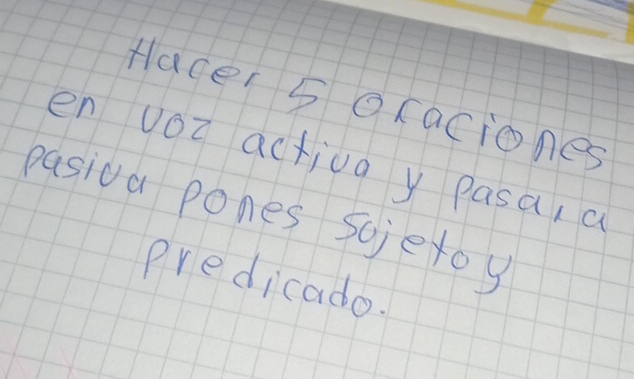 Hacer 5 oraciones
en voz activa y pasar a
pasiva pones sojeto y
predicado.